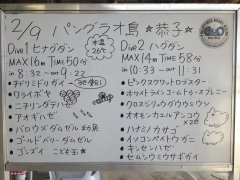 2/9 パングラオ島 ☆ 恭子 ☆
Dive 1 ヒナグダン
水温 26℃
MAX 16m TIME 50分
in 8:32 → out 9:22
チドリミドリガイ
ワライボヤ
ニチリンダテハゼ
アオギハゼ
バロウズダムセル幼魚
ゴールドベリーダムセル
ゴンズイ こども玉
Dive 2 ハグダン
MAX 14m TIME 68分
in 10:33 → out 11:31
ピンクスクワットロブスター
ホワイトラインコードゴースゴビー
クロスジリュウグウウミウシ
オオモンカエルアンコウ
×2
ハナミノカサゴ
イソコンペイトウガニ
キンセンハゼ
セムシウミウサギガイ